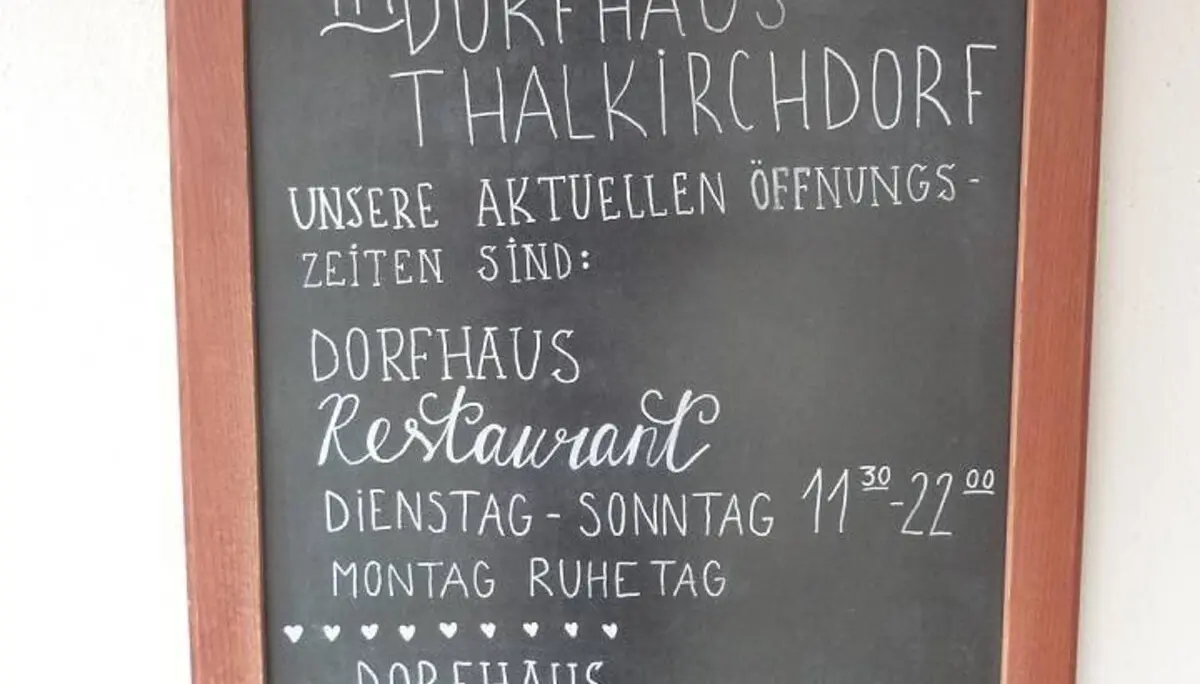 im DORFHAUS
THALKIRCHDORF
UNSERE AKTUELLEN ÖFFNUNGS-
ZEITEN SIND:
DORFHAUS
Restaurant
DIENSTAG - SONNTAG 11 30 - 22 00
MONTAG RUHETAG
DORFHAUS